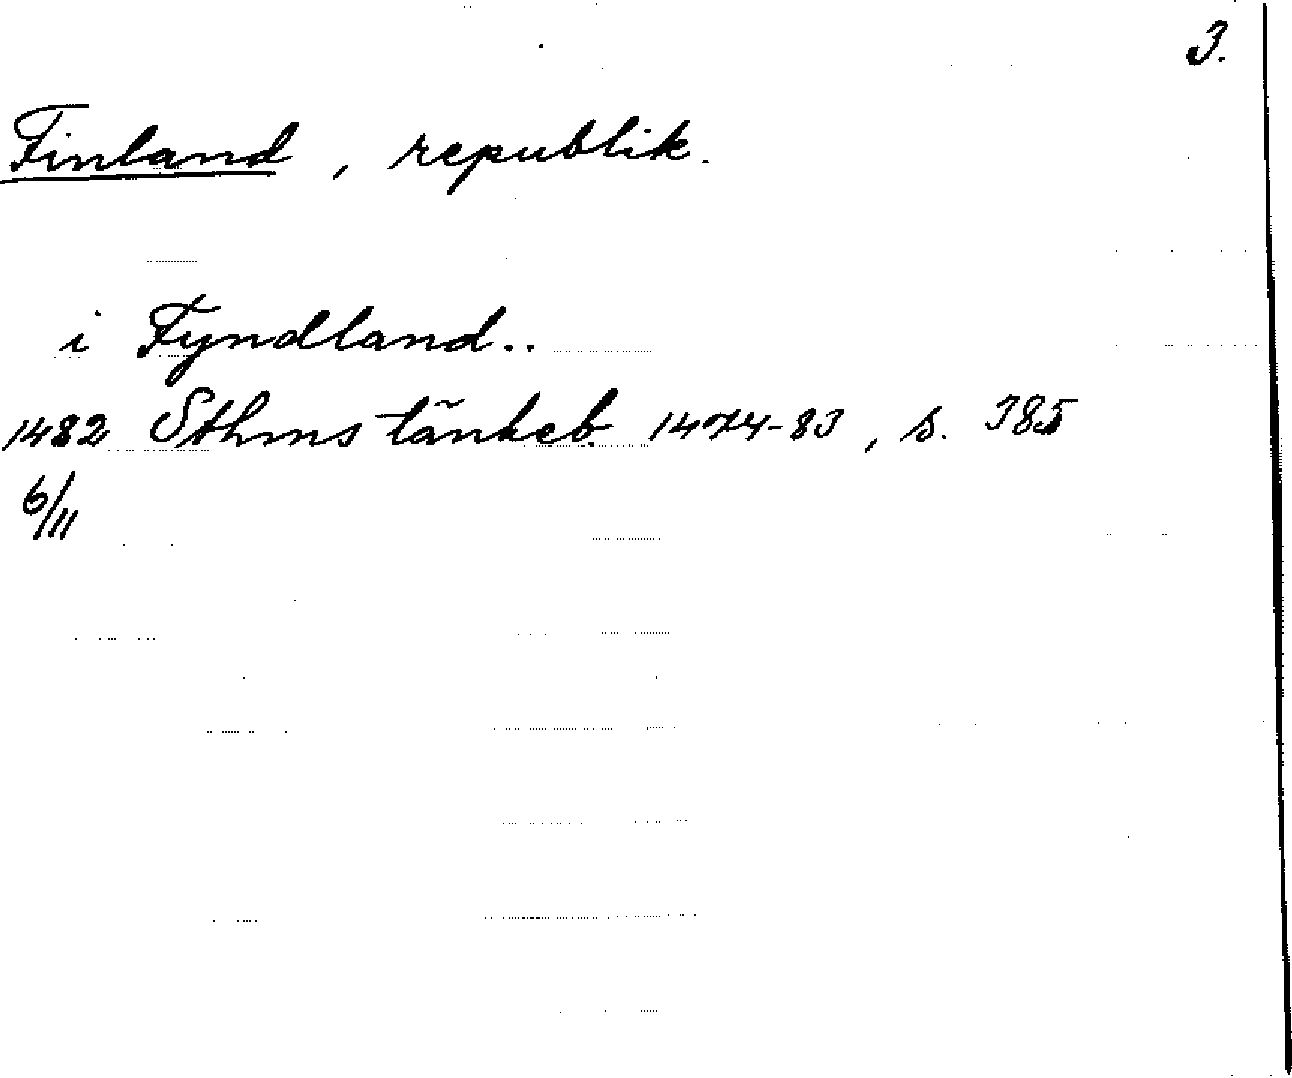 3.
Finland, republik.
i Fyndland..
1482 Sthms tänkeb 1474-83, s. 385
6/11